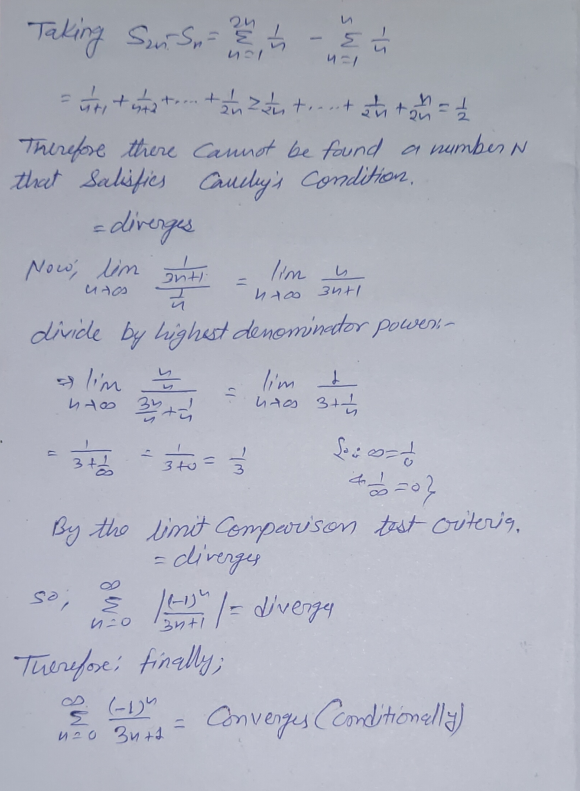 Taking S₂ₙ-Sₙ = ²ⁿΣₙ₌₁ 1/n - ⁿΣₙ₌₁ 1/n
= 1/(n+1) + 1/(n+2) + ... + 1/2n ≥ 1/2n + .... + 1/2n + n/2n = 1/2
Therefore there cannot be found a number N
that Satisfies Cauchy's Condition.
= diverges
Now, lim n→∞ (1/(3n+1))/(1/n) = lim n→∞ n/(3n+1)
divide by highest denominator power:-
⇒ lim n→∞ (n/n)/(3n/n + 1/n) = lim n→∞ 1/(3+1/n)
= 1/(3+1/∞) = 1/(3+0) = 1/3 {∵ ∞ = 1/0
& 1/∞ = 0}
By the limit Comparison test criteria.
= diverges
so, ∞Σₙ₌₀ |(-1)ⁿ/(3n+1)| = diverge
Therefore; finally;
∞Σₙ₌₀ (-1)ⁿ/(3n+1) = Converges (Conditionally)